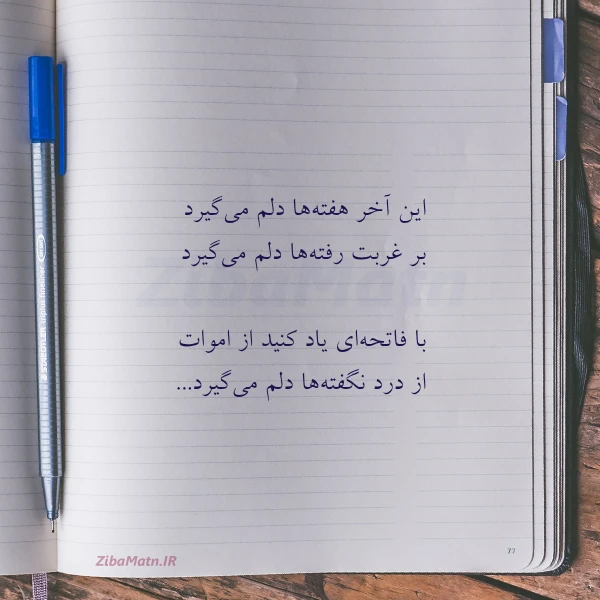 این آخر هفته‌ها دلم می‌گیرد
بر غربت رفته‌ها دلم می‌گیرد
با فاتحه‌ای یاد کنید از اموات
از درد نگفته‌ها دلم می‌گیرد...
ZibaMatn.IR
ZibaMatn
77